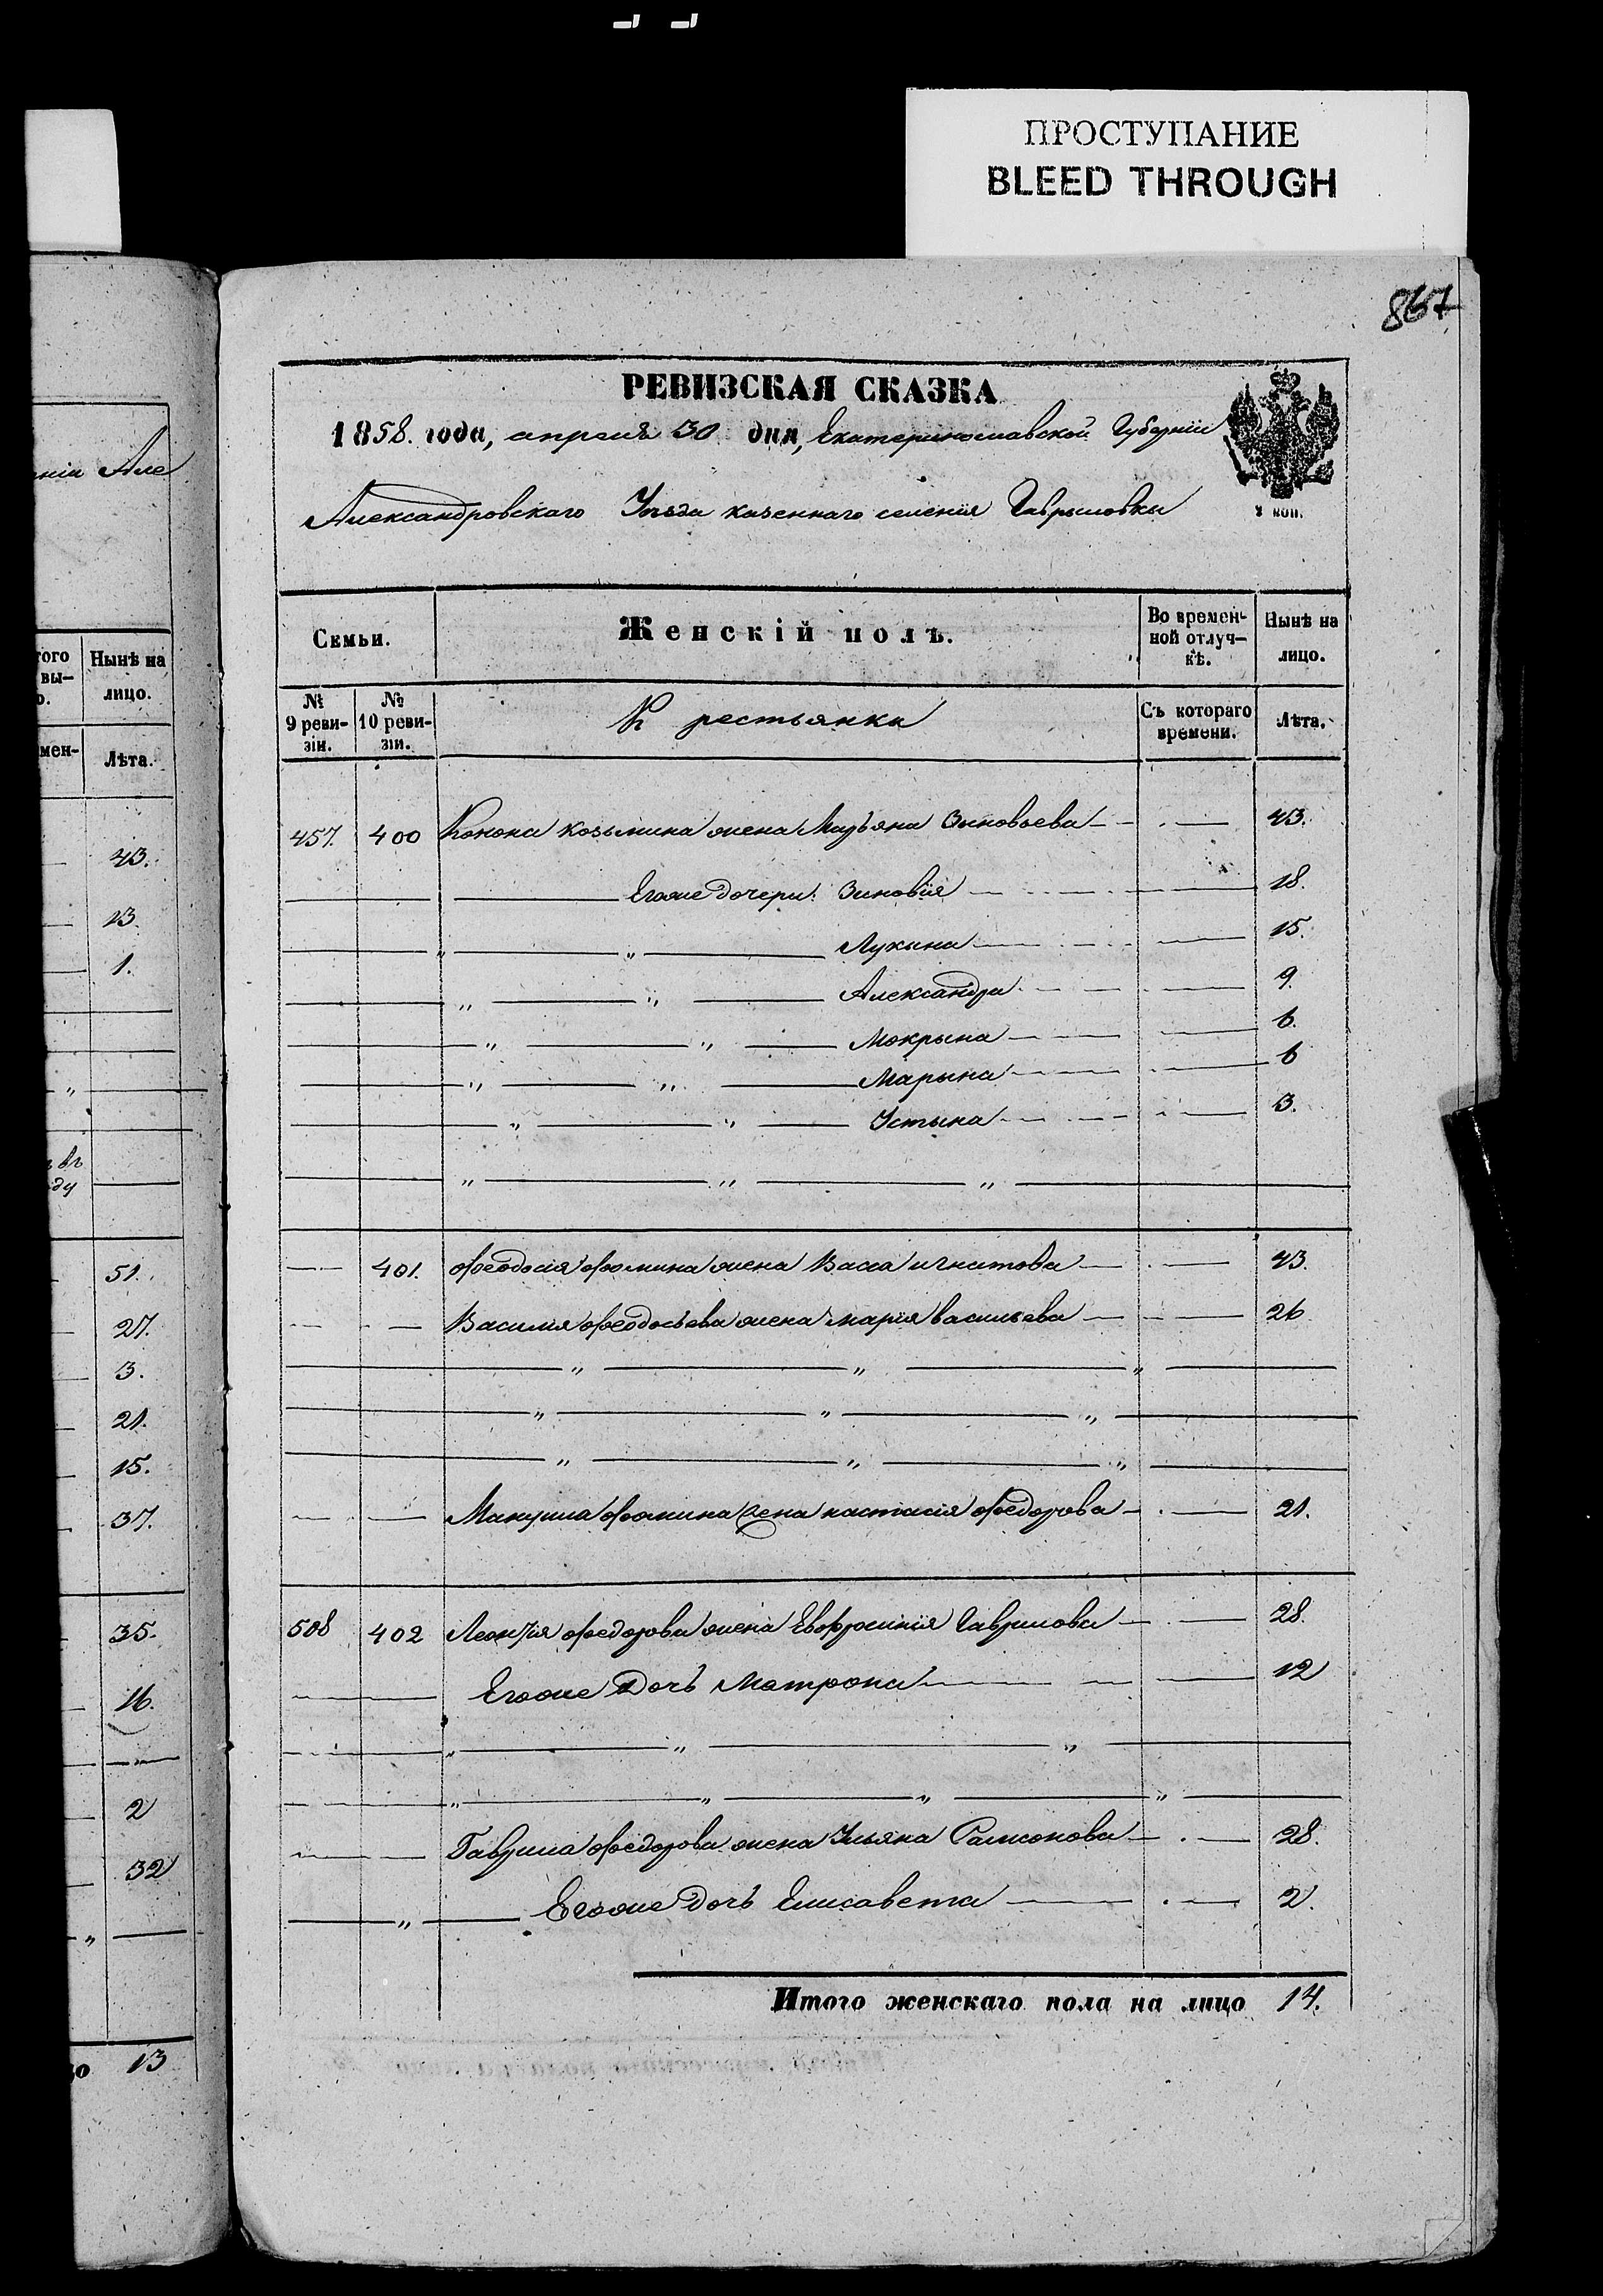 ПРОСТУПАНИЕ
BLEED THROUGH
867
РЕВИЗСКАЯ СКАЗКА
1858. года, апреля 30 дня, Екатеринославской Губернiи
Александровскаго Уѣзда казеннаго селенiя Гаврыловки
коп.
Семьи.
Женскiй полъ.
Во времен-
ной отлуч-
кѣ.
Нынѣ на
лицо.
№
9 реви-
зiи.
№
10 реви-
зiи.
Крестьянка
Съ котораго
времени.
Лѣта.
457. 400 Конона козьмина жена Марьяна Зыновьева 43.
Егоже дочери: Зиновiя 18.
Лукына 15.
Александра 9.
Мокрына 6.
Марына 6
Устына 3.
401. феодосiя фомина жена Васса игнатова 43.
Василiя феодосьева жена марiя васильева 26
Мануила фомина жена настасiя федорова 21.
508 402 Леонтiя федорова жена Евфросинiя Гаврилова 28.
Егоже Дочь Матрона 12
Гаврила федорова жена Ульяна Самсонова 28.
Егоже Дочь Елисавета 2.
Итого женскаго пола на лицо 14.
нiи Але
того
вы-
о.
Нынѣ на
лицо.
мен-
Лѣта.
43.
13.
1.
въ
ду
51.
27.
3.
21.
15.
37.
35.
16.
2
32
цо 13